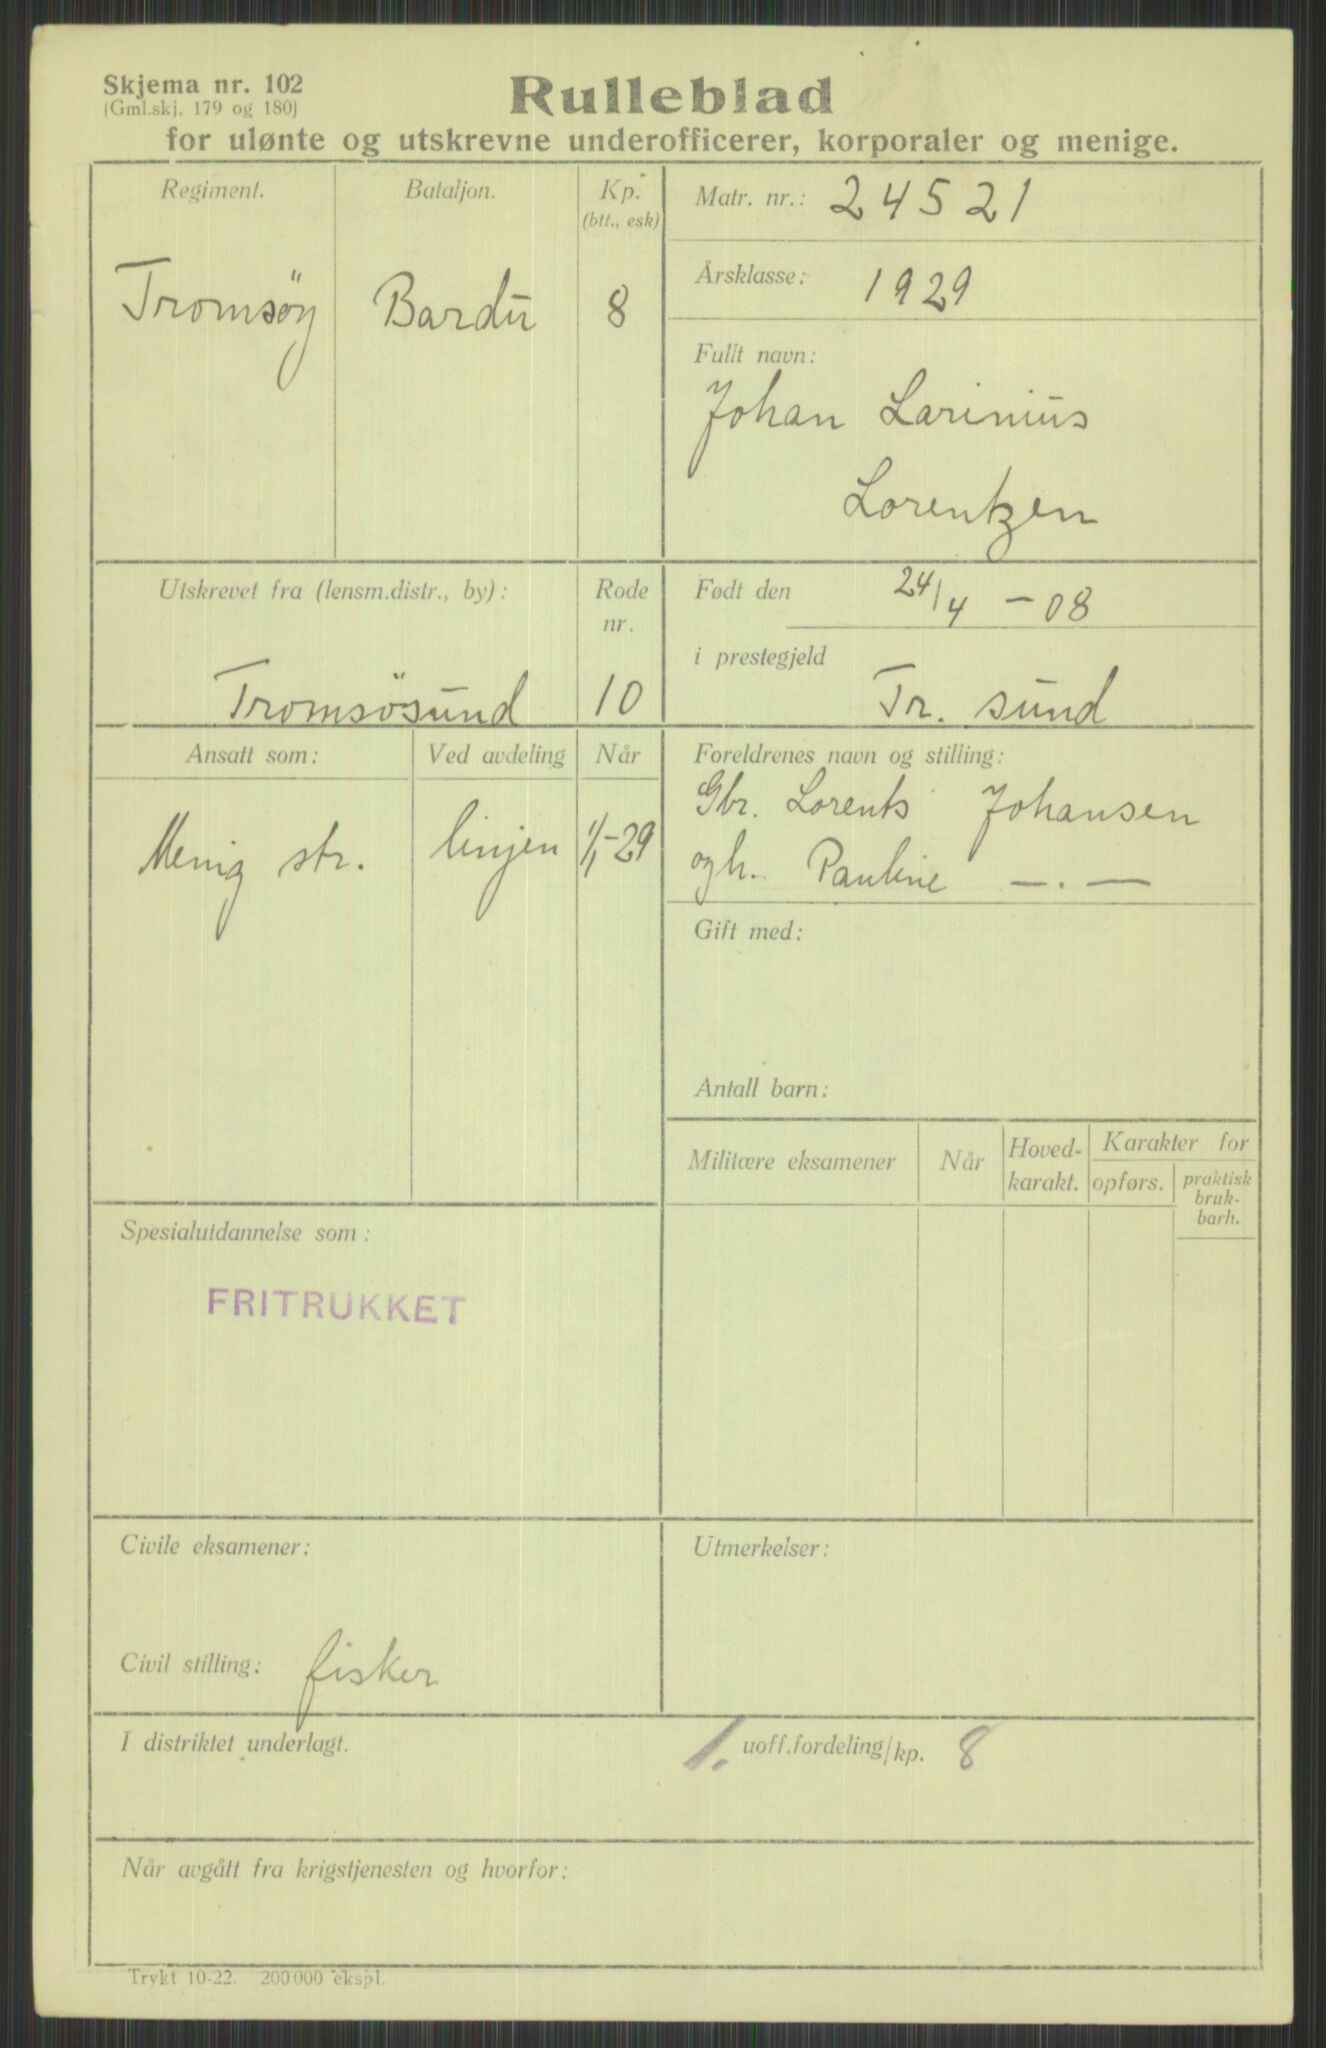 Skjema nr. 102
(Gml.skj. 179 og 180)
Rulleblad
for ulønte og utskrevne underofficerer, korporaler og menige.
Regiment.
Bataljon.
Kp.
(btt., esk)
Tromsöy
Bardu
8
Matr. nr.: 24521
Årsklasse: 1929
Fullt navn:
Johan Larinius
Lorentzen
Utskrevet fra (lensm.distr., by):
Rode
nr.
Tromsösund
10
Født den 24/4 - 08
i prestegjeld
Tr. sund
Ansatt som:
Ved avdeling
Når
Menig str.
linjen
1/1-29
Foreldrenes navn og stilling:
Gbr. Lorents Johansen
ogh. Pauline — . —
Gift med:
Antall barn:
Militære eksamener
Når
Hoved-
karakt.
Karakter for
opførs.
praktisk
bruk-
barh.
Spesialutdannelse som:
FRITRUKKET
Civile eksamener:
Civil stilling: fisker
Utmerkelser:
I distriktet underlagt.
1. uoff.fordeling/kp. 8
Når avgått fra krigstjenesten og hvorfor:
Trykt 10-22. 200 000 ekspl.